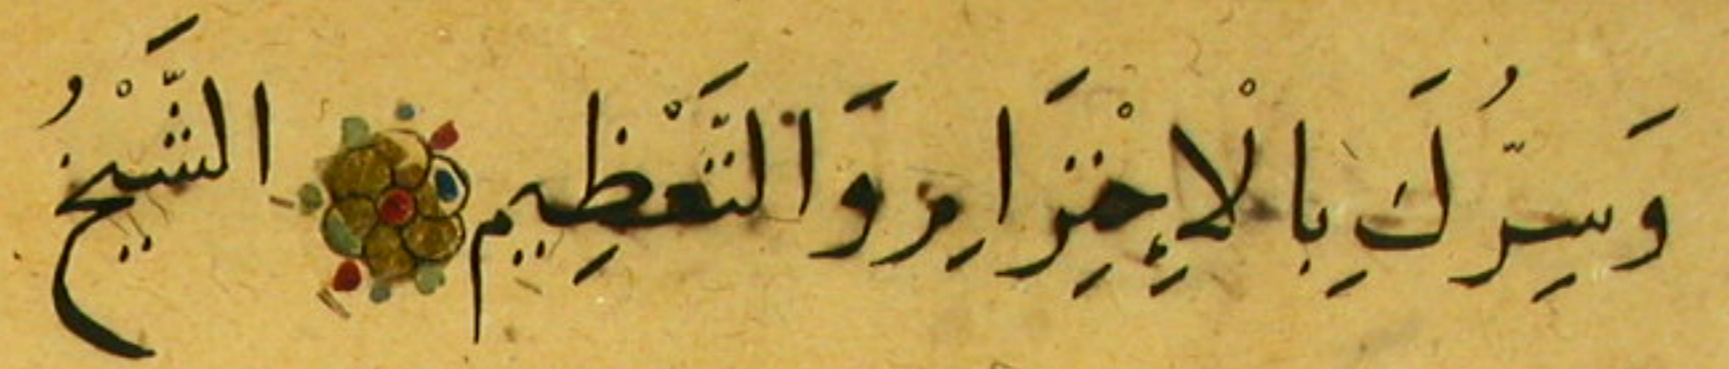 وَسِرُّكَ بِالْإِحْتِرَامِ وَالتَّعْظِيمِ الشَّيْخُ